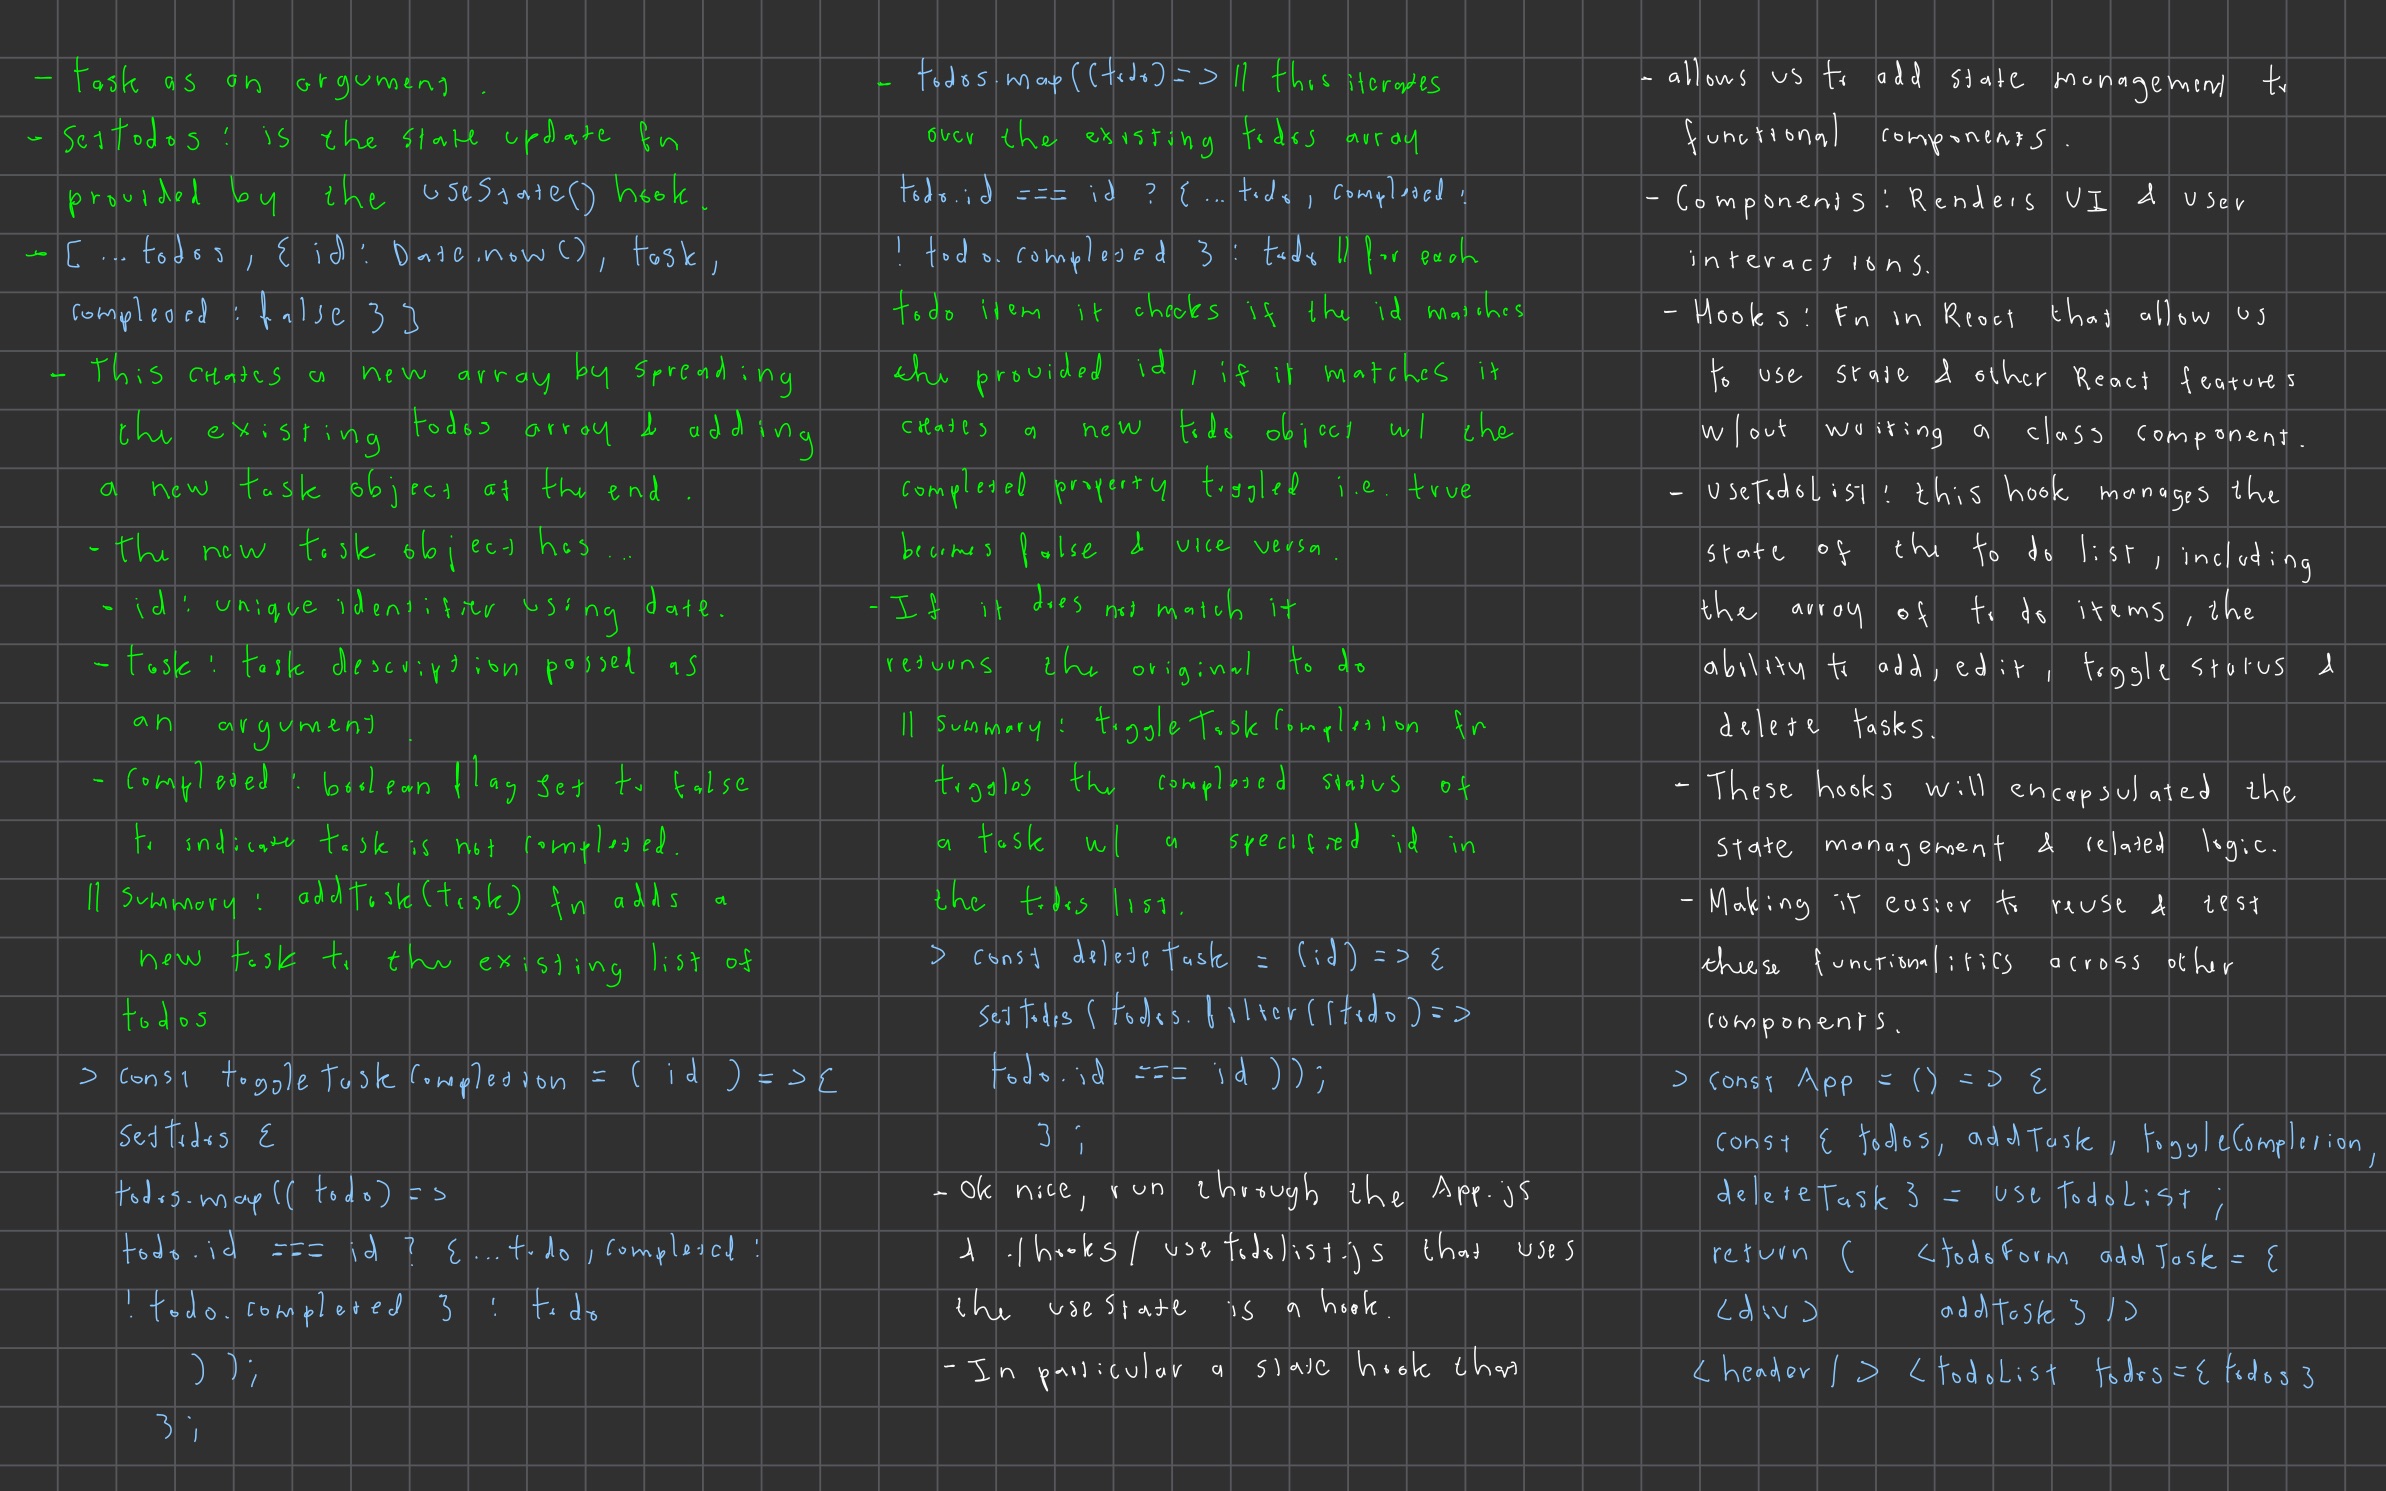 - Task as an argument.
- SetTodos : is the state update fn
provided by the useState() hook.
- [ ...todos, { id: Date.now(), task,
completed : false } ]
- This creates a new array by spreading
the existing todos array & adding
a new task object at the end.
- The new task object has...
- id: unique identifier using date.
- Task: task description passed as
an argument.
- Completed : boolean flag set to false
to indicate task is not completed.
// Summary: addTask(task) fn adds a
new task to the existing list of
todos
> const toggleTaskCompletion = ( id ) => {
setTodos {
todos.map(( todo) =>
todo.id === id ? { ...todo, completed :
! todo.completed } : todo
) );
} ;
- todos.map((todo) => // this iterates
over the existing todos array
todo.id === id ? { ... todo, completed :
! todo.completed } : todo // for each
todo item it checks if the id matches
the provided id, if it matches it
creates a new todo object w/ the
completed property toggled i.e. true
becomes false & vice versa.
- If it does not match it
returns the original to do
// Summary : toggleTaskCompletion fn
toggles the completed status of
a task w/ a specified id in
the todos list.
> const deleteTask = (id) => {
setTodos ( todos.filter((todo) =>
todo.id === id ));
} ;
- Ok nice, run through the App.js
& ./hooks/ usetodolist.js that uses
the useState is a hook.
- In particular a state hook that
- allows us to add state management to
functional components.
- Components : Renders UI & user
interactions.
- Hooks: Fn in React that allow us
to use state & other React features
w/out writing a class component.
- useTodoList: this hook manages the
state of the to do list, including
the array of to do items, the
ability to add, edit, toggle status &
delete tasks.
- These hooks will encapsulated the
state management & related logic.
- Making it easier to reuse & test
these functionalities across other
components.
> const App = () => {
const { todos, addTask, toggleCompletion,
deleteTask } = useTodoList ;
return ( <todoForm addTask = {
<div> addTask } />
<header /> <todoList todos={ todos }